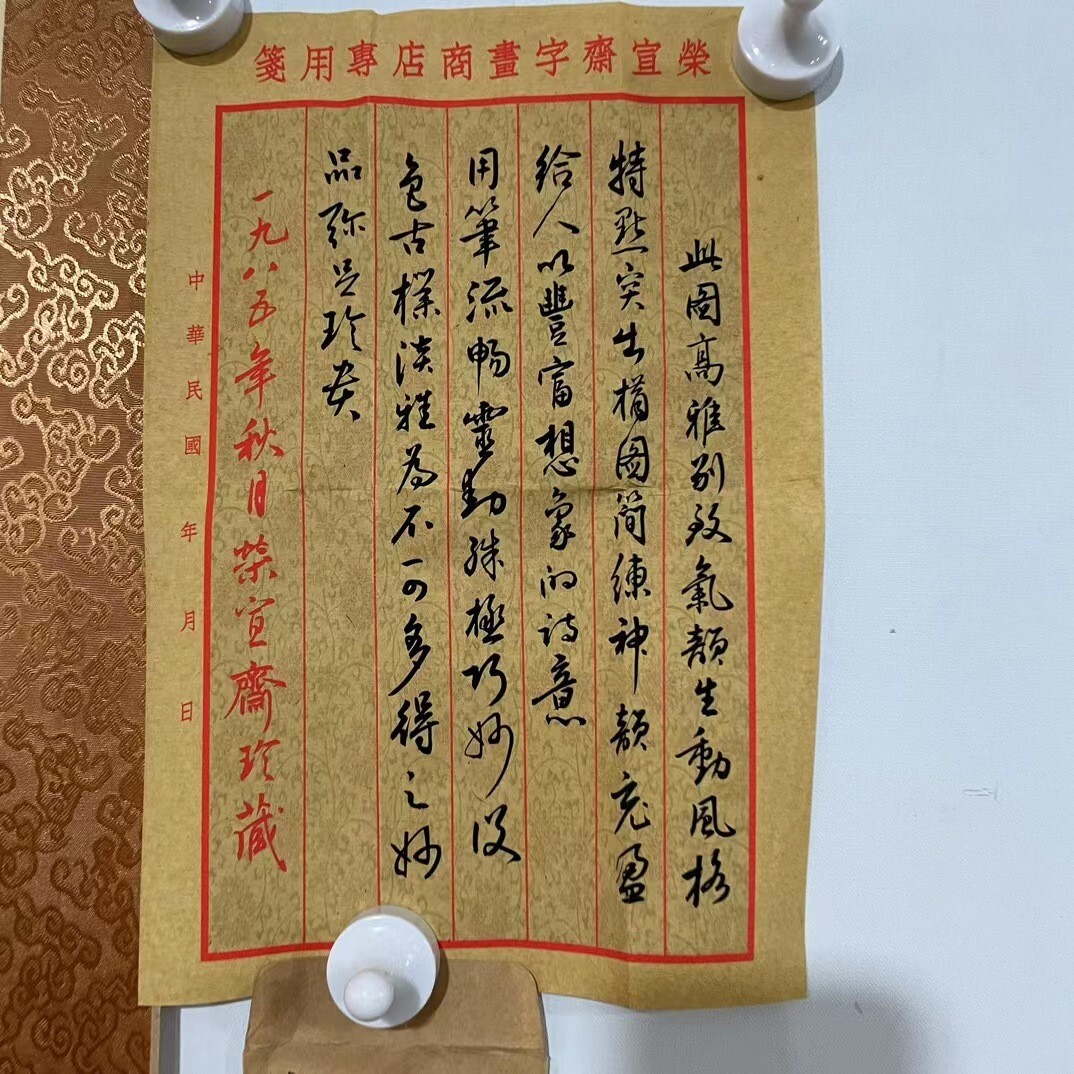 榮宣齋字畫商店專用箋
此图高雅别致氣韻生動風格
特點突出構图简練神韻充盈
给人以豐富想象的诗意
用筆流畅靈動殊極巧妙设
色古樸淡雅為不可多得之妙
品弥足珍贵
一九八五年秋月荣宣齋珍藏
中華民國 年 月 日